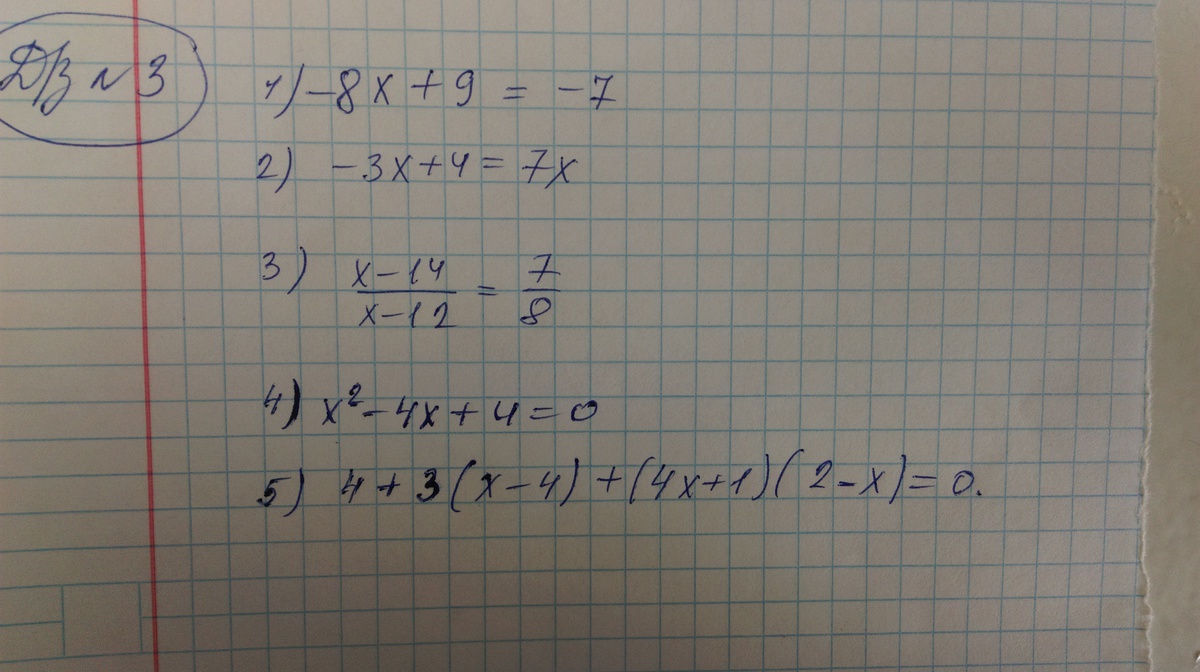 ДЗ № 3
1) -8x + 9 = -7
2) -3x + 4 = 7x
3) (x-14)/(x-12) = 7/8
4) x² - 4x + 4 = 0
5) 4 + 3(x-4) + (4x+1)(2-x) = 0.